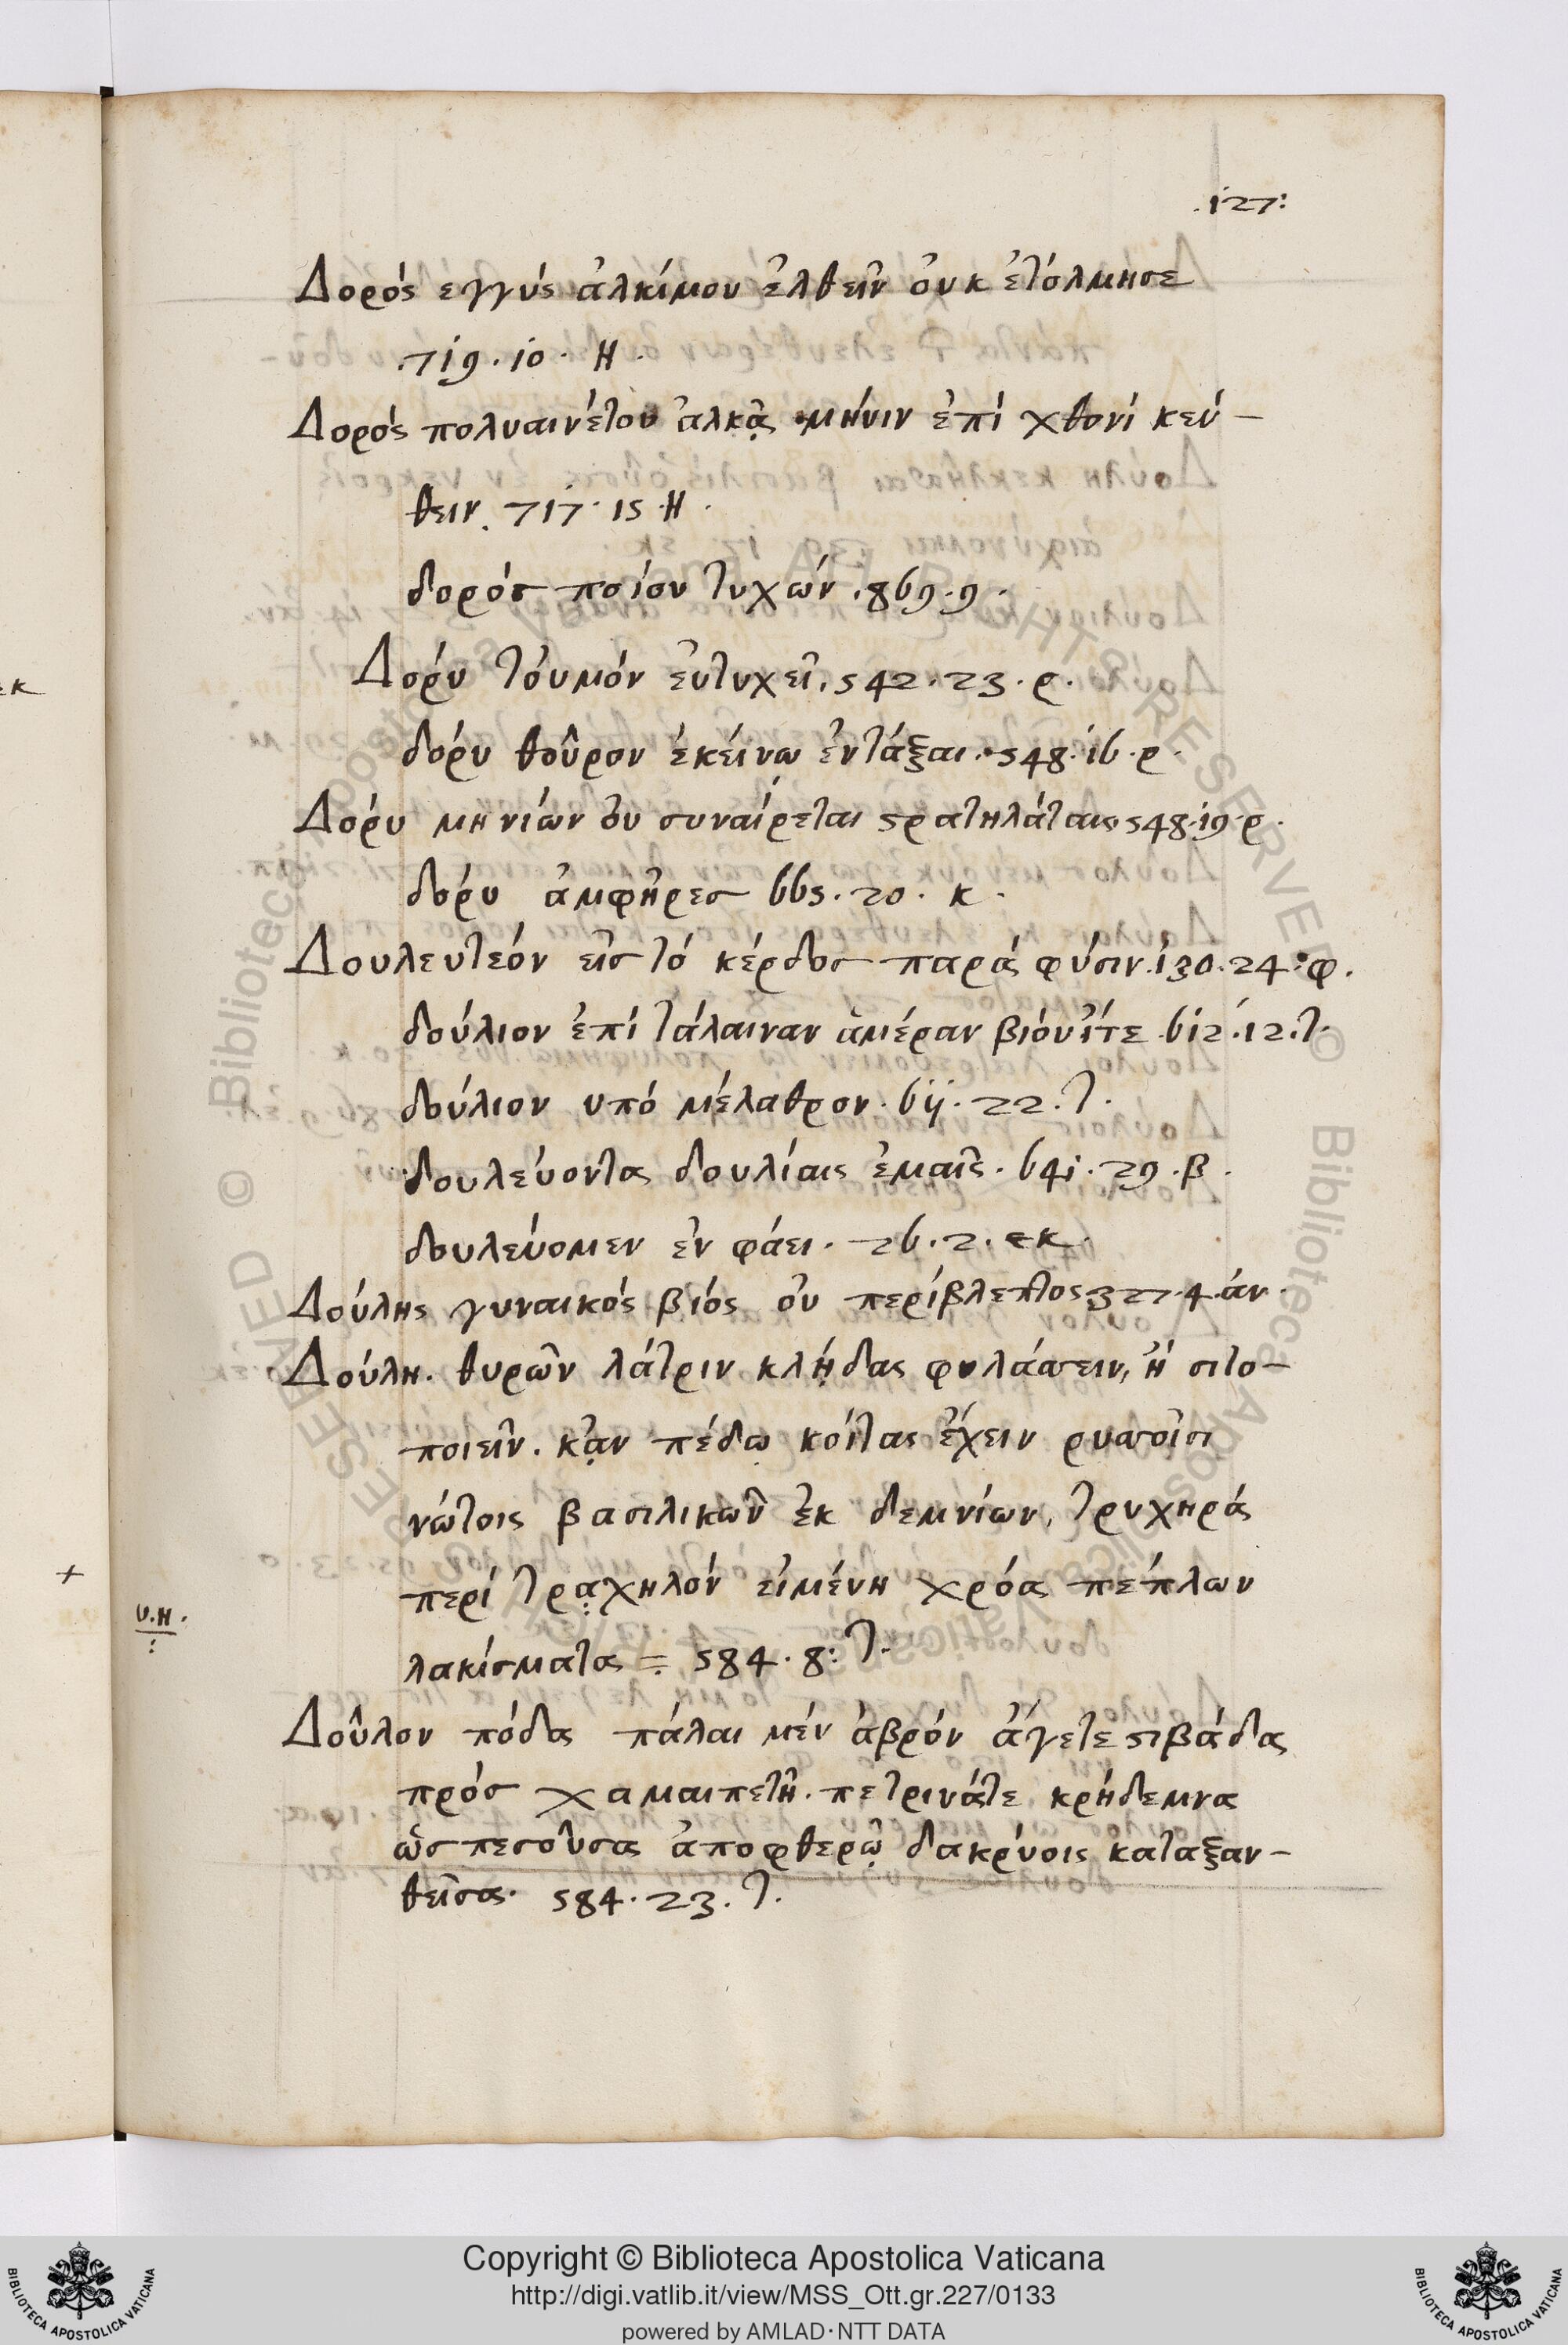 127:
Δορός εγγύς ἀλκίμου ἐλθεῖν ὀυκ ἐτόλμησε
719. 10. Η.
Δορός πολυαινέτου ἀλκᾷς μήνιν ἐπί χθονί κεύ-
θειν. 717. 15. Η.
δορός ποίου τυχών. 869. 9.
Δορύ τὀυμόν ἐυτυχεῖ. 542. 23. ρ.
δόρυ θοῦρον ἐκείνῳ ἐντάξαι. 548. 16. ρ.
Δόρυ μηνίων ὀυ συναίρεται ϛρατηλάταις 548. 19. ρ.
δόρυ ἀμφῆρεσ 665. 20. κ.
Δουλευτεόν εἰσ τό κέρδοσ παρά φύσιν. 130. 24. φ.
δούλιον ἐπί τάλαιναν ἁμέραν βιόυ ἶτε 612. 12. τ.
δούλιον υπό μέλαθρον. 611. 22. τ.
δουλεύοντας δουλίαις ἐμαῖς. 641. 29. β.
δουλεύομεν ἐν φάει. 26. 2. εκ.
Δούλης γυναικός βιός ὀυ περίβλεπτος 327. 4. άν.
Δούλη. θυρῶν λάτριν κλῄδας φυλάσσειν, ἤ σιτο-
ποιεῖν. κᾀν πέδῳ κοίτας ἔχειν ρυσσοῖσι
νώτοις βασιλικῶν ἐκ δεμνίων, τρυχηρά
περί τραχηλόν εἱμένη χρόα πέπλων
λακίσματα = 584. 8: τ.
υ.η.
Δοῦλον πόδα πάλαι μέν ἁβρόν ἄγετε ϛιβάδα
πρόσ χαμαιπετῆ. πετρινάτε κρήδεμνα
ὡσ πεσοῦσα ἀποφθερῶ δακρύοις καταξαν-
θεῖσα. 584. 23. τ.
εκ
+
Copyright © Biblioteca Apostolica Vaticana
http://digi.vatlib.it/view/MSS_Ott.gr.227/0133
powered by AMLAD·NTT DATA
BIBLIOTECA APOSTOLICA VATICANA
BIBLIOTECA APOSTOLICA VATICANA